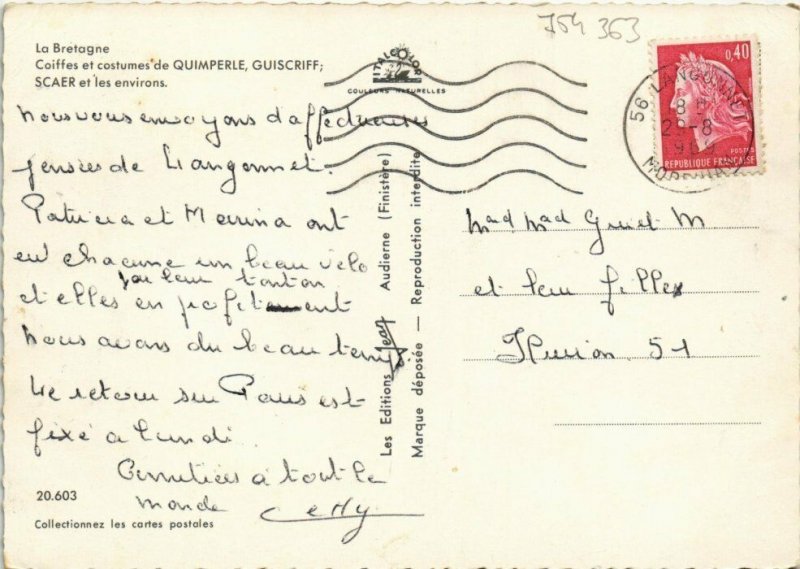 754 363
La Bretagne
Coiffes et costumes de QUIMPERLE, GUISCRIFF;
SCAER et les environs.
ITALCOLOR
COULEURS NATURELLES
0,40
POSTES
REPUBLIQUE FRANÇAISE
56 LANGONNET
MORBIHAN
nous vous envoyons d'affectueuses
pensées de Langonnet.
Patricia et Marina ont
eu chacune un beau vélo
par leur tonton
et elles en profitent
nous avons du beau temps.
Le retour sur Paris est
fixé à lundi
Amitiées à tout le
monde
Les Editions Jean Audierne (Finistère)
Marque déposée — Reproduction interdite
et leur filles
51
20.603
Collectionnez les cartes postales